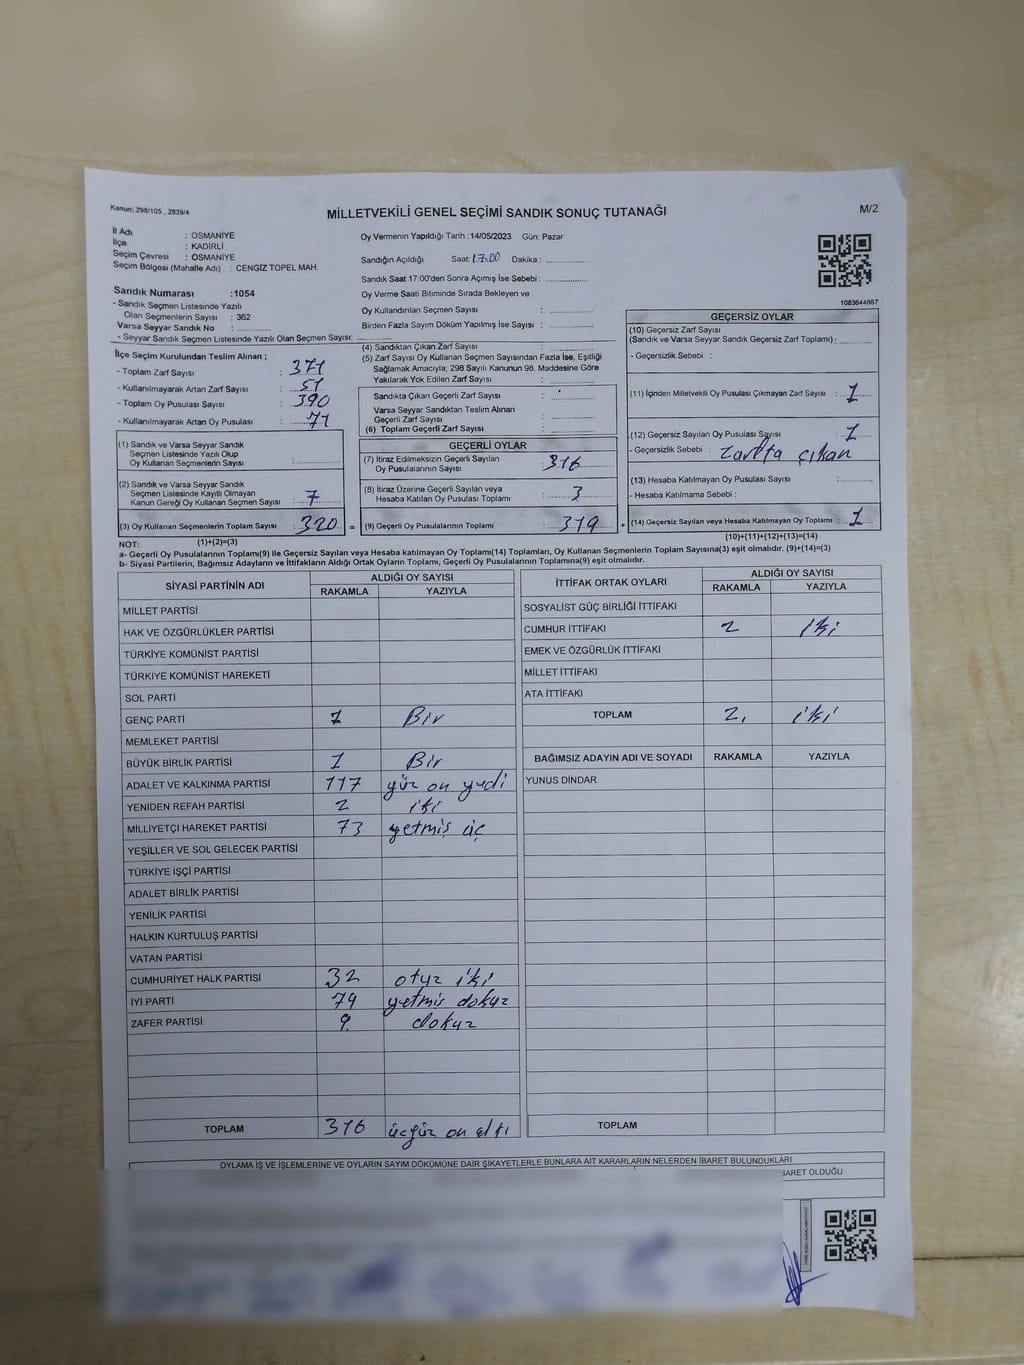 Kanun; 298/105 , 2839/4
MİLLETVEKİLİ GENEL SEÇİMİ SANDIK SONUÇ TUTANAĞI
M/2
İl Adı : OSMANİYE
İlçe : KADİRLİ
Seçim Çevresi : OSMANİYE
Seçim Bölgesi (Mahalle Adı) : CENGİZ TOPEL MAH.
Sandık Numarası :1054
- Sandık Seçmen Listesinde Yazılı
Olan Seçmenlerin Sayısı : 362
Varsa Seyyar Sandık No :
- Seyyar Sandık Seçmen Listesinde Yazılı Olan Seçmen Sayısı:
Oy Vermenin Yapıldığı Tarih :14/05/2023 Gün: Pazar
Sandığın Açıldığı Saat: 17:00 Dakika :
Sandık Saat 17:00'den Sonra Açımış İse Sebebi :
Oy Verme Saati Bitiminde Sırada Bekleyen ve
Oy Kullandırılan Seçmen Sayısı :
Birden Fazla Sayım Döküm Yapılmış İse Sayısı :
1083644867
İlçe Seçim Kurulundan Teslim Alınan ;
- Toplam Zarf Sayısı : 371
- Kullanılmayarak Artan Zarf Sayısı : 51
- Toplam Oy Pusulası Sayısı : 390
- Kullanılmayarak Artan Oy Pusulası : 71
(1) Sandık ve Varsa Seyyar Sandık
Seçmen Listesinde Yazılı Olup
Oy Kullanan Seçmenlerin Sayısı :
(2) Sandık ve Varsa Seyyar Sandık
Seçmen Listesinde Kayıtlı Olmayan
Kanun Gereği Oy Kullanan Seçmen Sayısı : 7
(3) Oy Kullanan Seçmenlerin Toplam Sayısı : 320 =
(4) Sandıktan Çıkan Zarf Sayısı :
(5) Zarf Sayısı Oy Kullanan Seçmen Sayısından Fazla İse, Eşitliği
Sağlamak Amacıyla; 298 Sayılı Kanunun 98. Maddesine Göre
Yakılarak Yok Edilen Zarf Sayısı :
Sandıkta Çıkan Geçerli Zarf Sayısı :
Varsa Seyyar Sandıktan Teslim Alınan
Geçerli Zarf Sayısı :
(6) Toplam Geçerli Zarf Sayısı :
GEÇERLİ OYLAR
(7) İtiraz Edilmeksizin Geçerli Sayılan
Oy Pusulalarının Sayısı : 316
(8) İtiraz Üzerine Geçerli Sayılan veya
Hesaba Katılan Oy Pusulası Toplamı : 3
(9) Geçerli Oy Pusulalarının Toplamı : 319 +
GEÇERSİZ OYLAR
(10) Geçersiz Zarf Sayısı
(Sandık ve Varsa Seyyar Sandık Geçersiz Zarf Toplamı) :
- Geçersizlik Sebebi :
(11) İçinden Milletvekili Oy Pusulası Çıkmayan Zarf Sayısı : 1
(12) Geçersiz Sayılan Oy Pusulası Sayısı : 1
- Geçersizlik Sebebi : zarfta çıkan
(13) Hesaba Katılmayan Oy Pusulası Sayısı :
- Hesaba Katılmama Sebebi :
(14) Geçersiz Sayılan veya Hesaba Katılmayan Oy Toplamı : 1
NOT: (1)+(2)=(3)
(10)+(11)+(12)+(13)=(14)
a- Geçerli Oy Pusulalarının Toplamı(9) ile Geçersiz Sayılan veya Hesaba katılmayan Oy Toplamı(14) Toplamları, Oy Kullanan Seçmenlerin Toplam Sayısına(3) eşit olmalıdır. (9)+(14)=(3)
b- Siyasi Partilerin, Bağımsız Adayların ve İttifakların Aldığı Ortak Oyların Toplamı, Geçerli Oy Pusulalarının Toplamına(9) eşit olmalıdır.
SİYASİ PARTİNİN ADI
ALDIĞI OY SAYISI
RAKAMLA YAZIYLA
MİLLET PARTİSİ
HAK VE ÖZGÜRLÜKLER PARTİSİ
TÜRKİYE KOMÜNİST PARTİSİ
TÜRKİYE KOMÜNİST HAREKETİ
SOL PARTİ
GENÇ PARTİ 1 Bir
MEMLEKET PARTİSİ
BÜYÜK BİRLİK PARTİSİ 1 Bir
ADALET VE KALKINMA PARTİSİ 117 yüz on yedi
YENİDEN REFAH PARTİSİ 2 iki
MİLLİYETÇİ HAREKET PARTİSİ 73 yetmiş üç
YEŞİLLER VE SOL GELECEK PARTİSİ
TÜRKİYE İŞÇİ PARTİSİ
ADALET BİRLİK PARTİSİ
YENİLİK PARTİSİ
HALKIN KURTULUŞ PARTİSİ
VATAN PARTİSİ
CUMHURİYET HALK PARTİSİ 32 otuz iki
İYİ PARTİ 79 yetmiş dokuz
ZAFER PARTİSİ 9 dokuz
TOPLAM 316 üçyüz on altı
İTTİFAK ORTAK OYLARI
ALDIĞI OY SAYISI
RAKAMLA YAZIYLA
SOSYALİST GÜÇ BİRLİĞİ İTTİFAKI
CUMHUR İTTİFAKI 2 iki
EMEK VE ÖZGÜRLÜK İTTİFAKI
MİLLET İTTİFAKI
ATA İTTİFAKI
TOPLAM 2, iki
BAĞIMSIZ ADAYIN ADI VE SOYADI RAKAMLA YAZIYLA
YUNUS DİNDAR
TOPLAM
OYLAMA İŞ VE İŞLEMLERİNE VE OYLARIN SAYIM DÖKÜMÜNE DAİR ŞİKAYETLERLE BUNLARA AİT KARARLARIN NELERDEN İBARET BULUNDUKLARI
BARET OLDUĞU